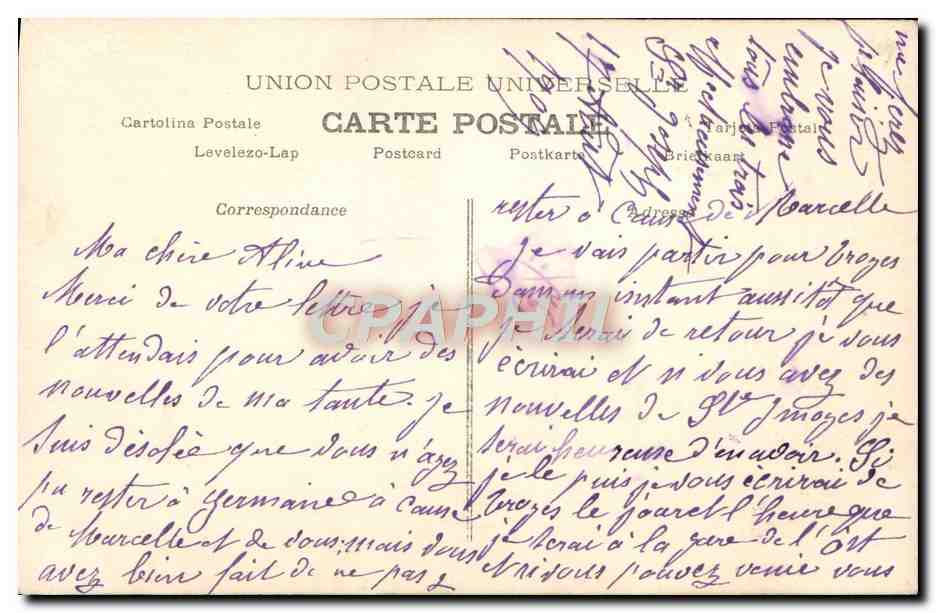 UNION POSTALE UNIVERSELLE
Cartolina Postale CARTE POSTALE Tarjeta Postal
Levelezo-Lap Postcard Postkarte Briefkaart
Correspondance
Adresse
CPAPHIL
Ma chère Aline
Merci de votre lettre je
l'attendais pour avoir des
nouvelles de ma tante. je
suis désolée que vous n'ayez
pu rester à Germaine à cause
de Marcelle et de vous. mais vous
avez bien fait de ne pas y
rester à cause de Marcelle
je vais partir pour Troyes
dans un instant aussitôt que
je serai de retour je vous
écrirai et si vous avez des
nouvelles de Ste Imoges je
serai heureuse d'en avoir. Si
je le puis je vous écrirai de
Troyes le jour et l'heure que
je serai à la gare de l'Est
et si vous pouvez venir vous
me ferez
plaisir
je vous
embrasse
tous les trois
affectueusement